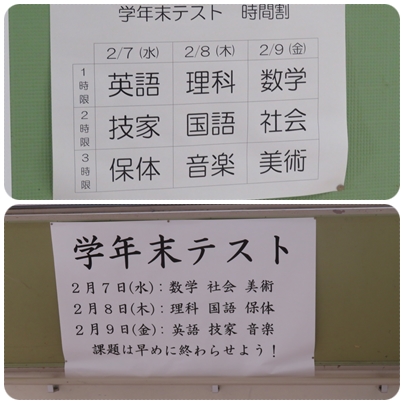 学年末テスト 時間割
2/7(水) 2/8(木) 2/9(金)
1時限 英語 理科 数学
2時限 技家 国語 社会
3時限 保体 音楽 美術
学年末テスト
2月7日(水):数学 社会 美術
2月8日(木):理科 国語 保体
2月9日(金):英語 技家 音楽
課題は早めに終わらせよう!